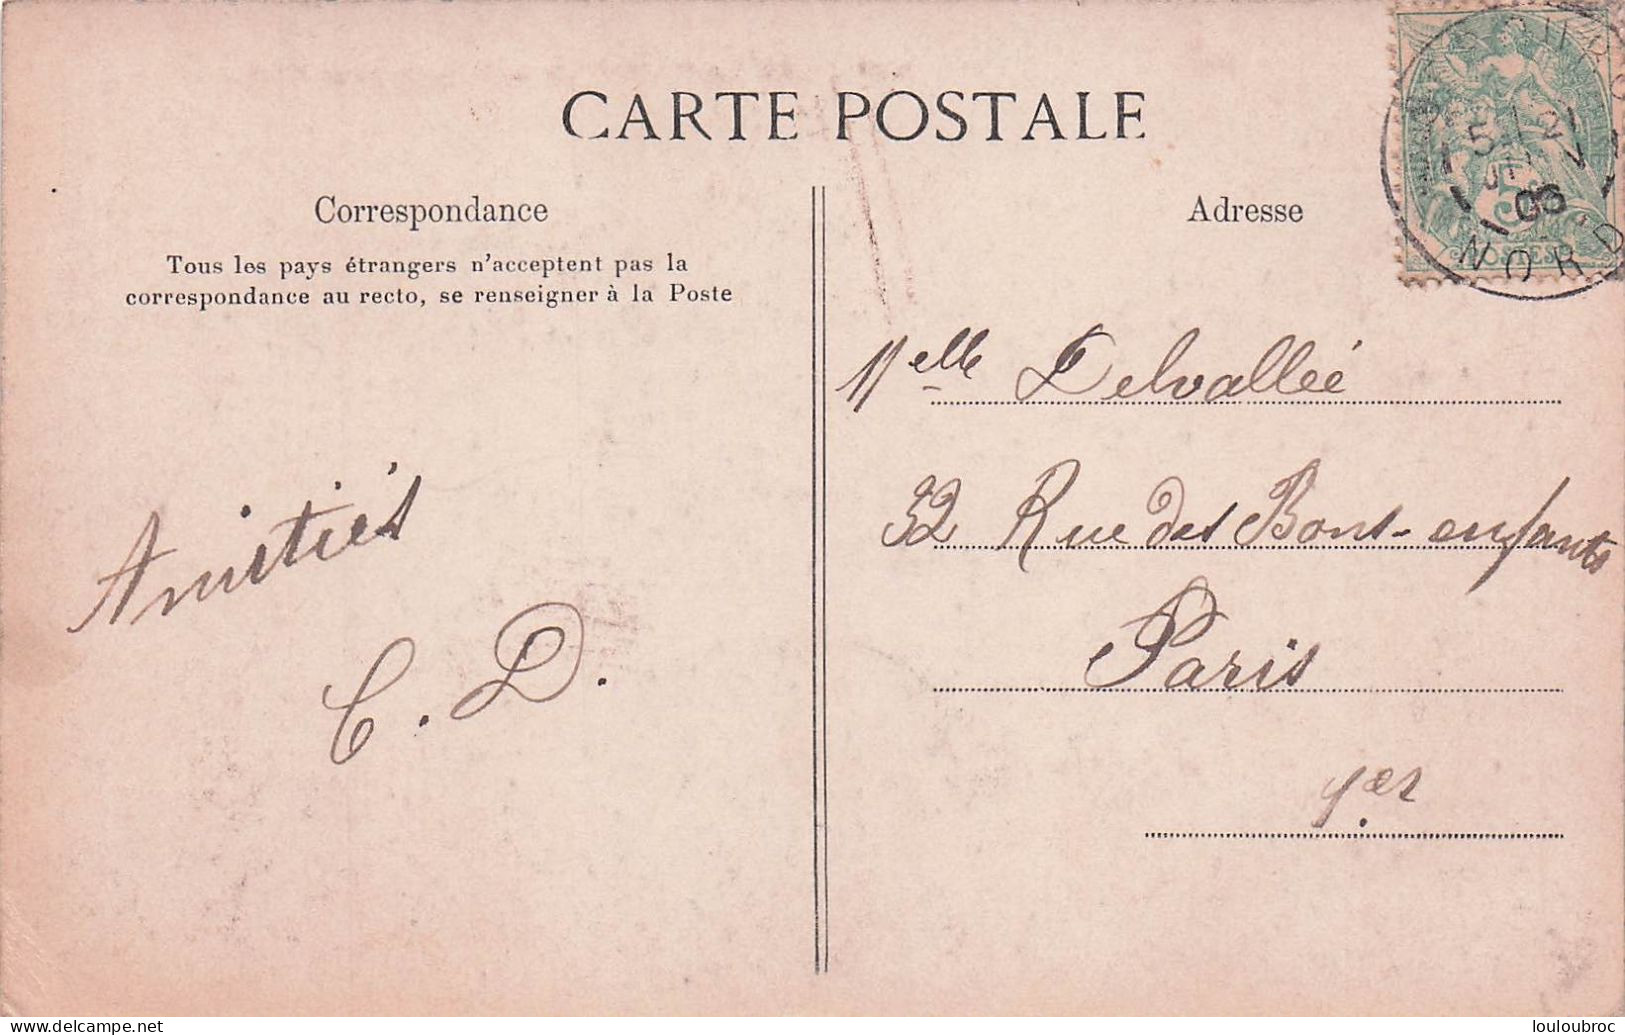 CARTE POSTALE
Correspondance
Tous les pays étrangers n'acceptent pas la
correspondance au recto, se renseigner à la Poste
Amitiés
C. D.
Adresse
Melle Delvallée
32 Rue des Bons-enfants
Paris
1er
5
06
NORD
delcampe.net
louloubroc